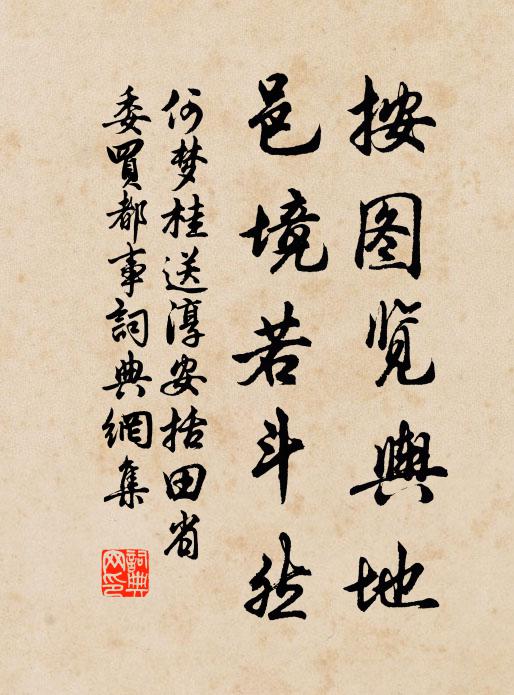 按图览舆地
邑境若斗然
何梦桂送淳安括田省
委買都事詞典網集
詞典
网印